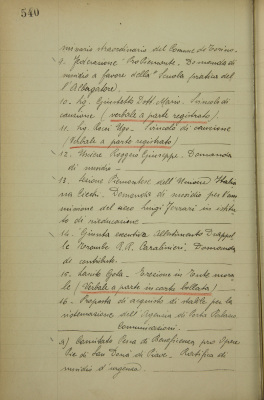 540
messaria straordinaria del Comune di Torino.
9. Federazione Prolissonante. Domanda di
sussidio a favore della "Scuola pratica del
l'Albergatore.
10. Sig. Giulietti Dott. Mario. Svincolo di
cauzione (verbale a parte registrato).
11. Sig. Rossi Ugo. Svincolo di cauzione
(Verbale a parte registrato)
12. Roggero Giuseppe. Domanda
di sussidio.
13. Sezione Piemontese dell'Unione Italia
na Ciechi. Domanda di sussidio per l'am
missione del cieco Luigi Ferrari in istitu
to di rieducazione.
14. Giunta esecutiva Allestimento Drappel
le Trombe R.R. Carabinieri. Domanda
di contributo.
15. Erezione in Ente mora
le (Verbale a parte in carta bollata)
16. Proposta di acquisto di stabile per la
sistemazione dell'Agenzia di Porta Palazzo
Comunicazioni.
a) Comitato Pesca di Beneficenza pro Opere
Pie di San Donà di Piave. Ratifica di
sussidio d'urgenza.